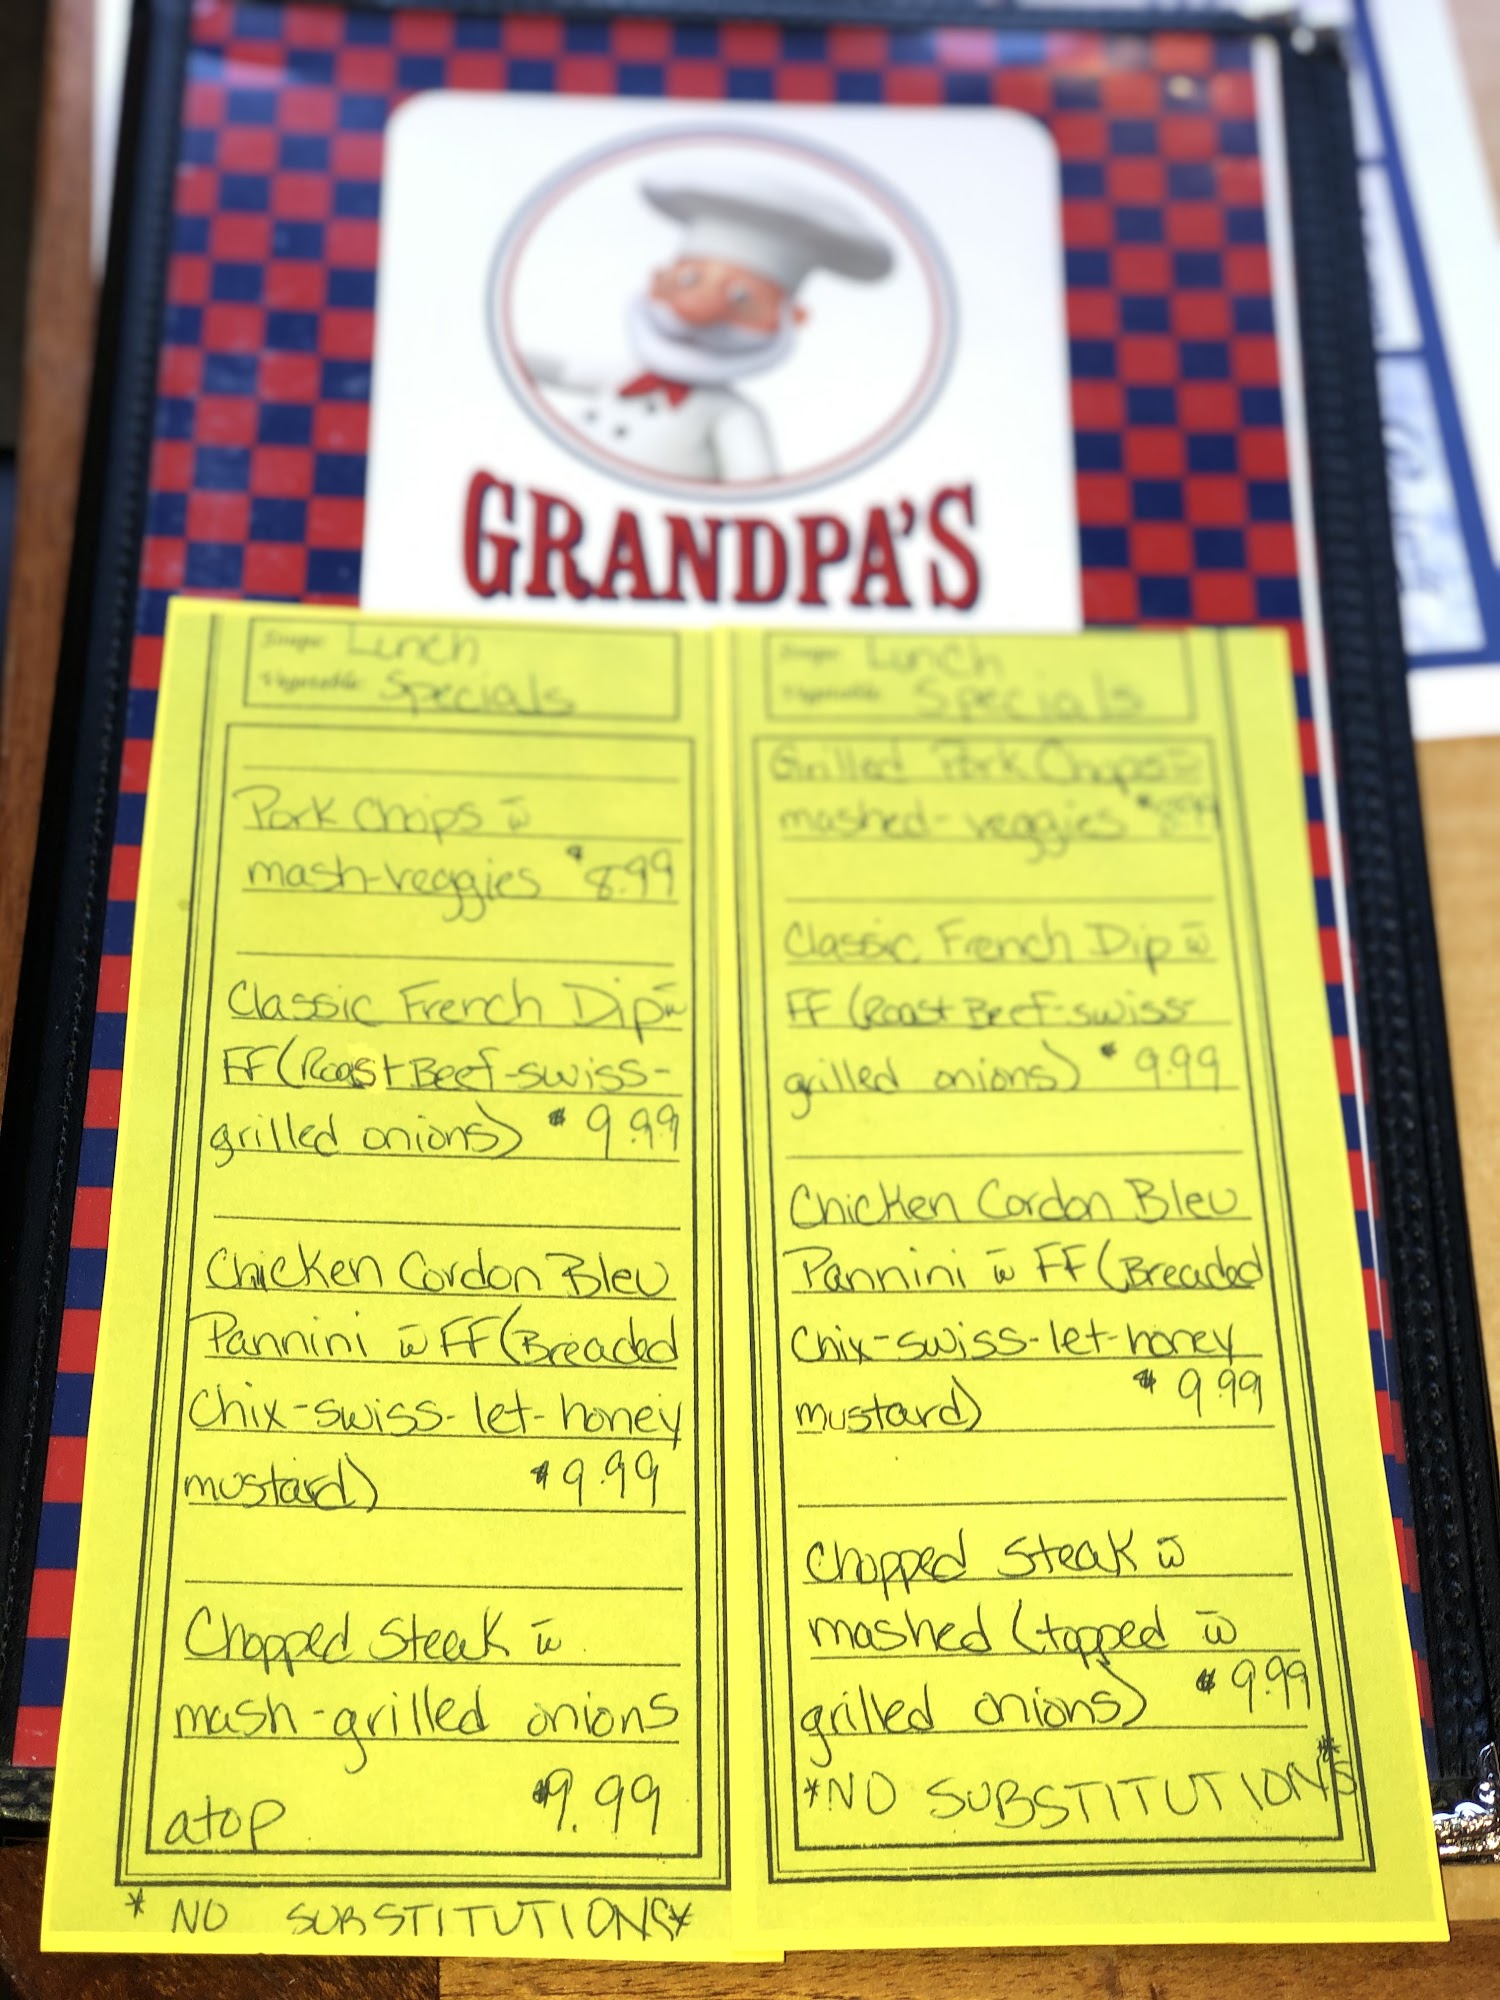 GRANDPA'S
Soups: Lunch
Vegetable: Specials
Pork Chops w̄
mash-veggies $8.99
Classic French Dip w̄
FF (Roast Beef-swiss-
grilled onions) $9.99
Chicken Cordon Bleu
Pannini w̄ FF (Breaded
Chix-swiss-let-honey
mustard) $9.99
Chopped Steak w̄
mash-grilled onions
atop $9.99
*NO SUBSTITUTIONS*
Soups: Lunch
Vegetable: Specials
Grilled Pork Chops w̄
mashed-veggies $8.99
Classic French Dip w̄
FF (Roast Beef-swiss-
grilled onions) $9.99
Chicken Cordon Bleu
Pannini w̄ FF (Breaded
Chix-swiss-let-honey
mustard) $9.99
Chopped Steak w̄
mashed (topped w̄
grilled onions) $9.99
*NO SUBSTITUTIONS*